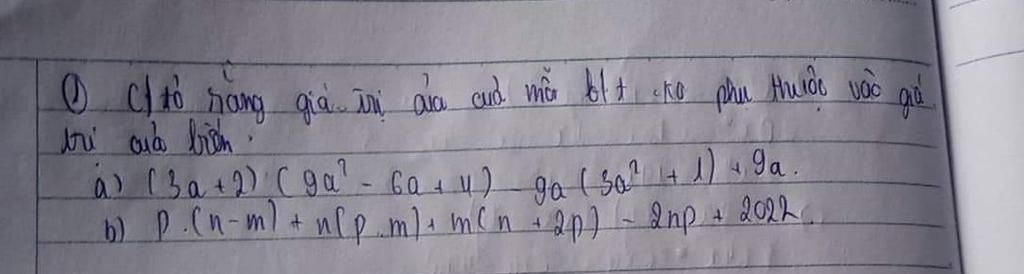 ① C/tỏ rằng giá trị của của mỗi b/t ko phụ thuộc vào giá
trị của biến.
a) (3a+2).(9a² - 6a + 4) - 9a(3a² + 1) + 9a.
b) p.(n-m) + n(p.m) + m(n + 2p) - 2np + 2022.